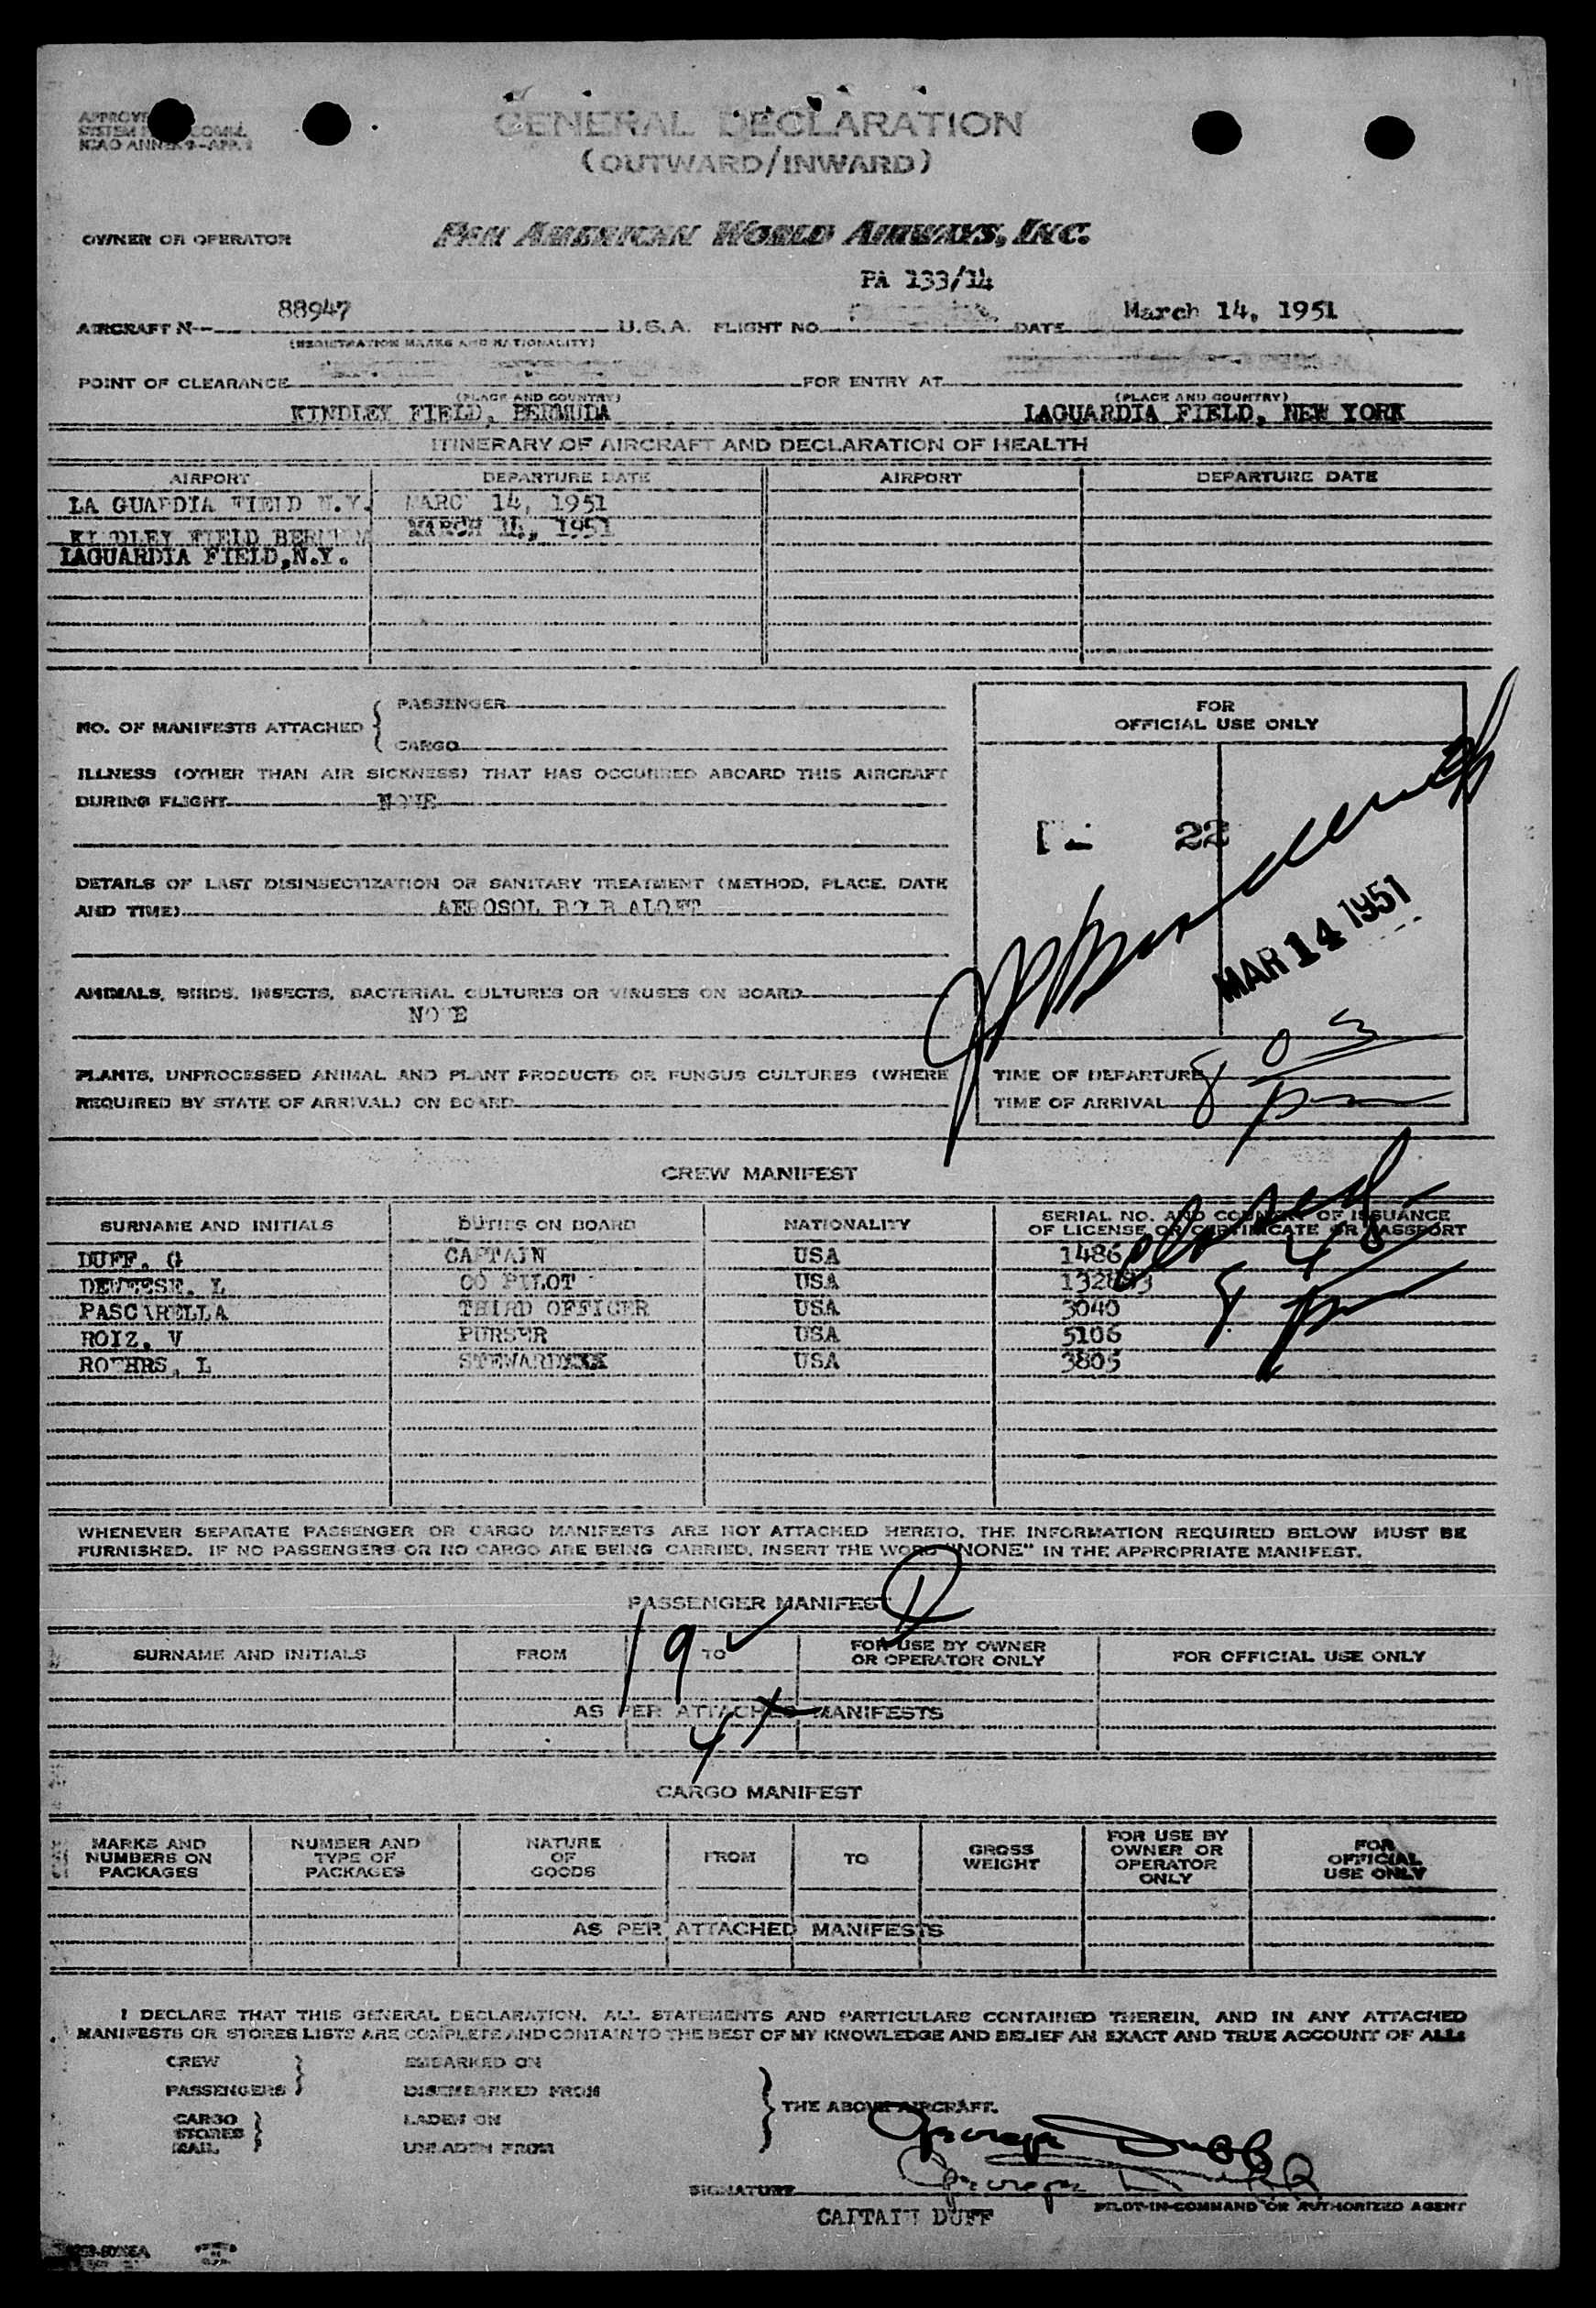 GENERAL DECLARATION
(OUTWARD/INWARD)
OWNER OR OPERATOR PAN AMERICAN WORLD AIRWAYS, INC.
PA 133/14
AIRCRAFT N— 88947 U.S.A. FLIGHT NO. DATE March 14, 1951
(REGISTRATION MARKS AND NATIONALITY)
POINT OF CLEARANCE FOR ENTRY AT
(PLACE AND COUNTRY) (PLACE AND COUNTRY)
KINDLEY FIELD, BERMUDA LAGUARDIA FIELD, NEW YORK
ITINERARY OF AIRCRAFT AND DECLARATION OF HEALTH
AIRPORT DEPARTURE DATE AIRPORT DEPARTURE DATE
LA GUARDIA FIELD N.Y. MARCH 14, 1951
KINDLEY FIELD BERMUDA MARCH 14, 1951
LAGUARDIA FIELD,N.Y.
NO. OF MANIFESTS ATTACHED { PASSENGER
CARGO
FOR
OFFICIAL USE ONLY
ILLNESS (OTHER THAN AIR SICKNESS) THAT HAS OCCURRED ABOARD THIS AIRCRAFT
DURING FLIGHT NONE
22
DETAILS OF LAST DISINSECTIZATION OR SANITARY TREATMENT (METHOD, PLACE, DATE
AND TIME) AEROSOL BOMB ALOFT
MAR 14 1951
ANIMALS, BIRDS, INSECTS, BACTERIAL CULTURES OR VIRUSES ON BOARD
NONE
PLANTS, UNPROCESSED ANIMAL AND PLANT PRODUCTS OR FUNGUS CULTURES (WHERE
REQUIRED BY STATE OF ARRIVAL) ON BOARD
TIME OF DEPARTURE 8 03
TIME OF ARRIVAL 8 pm
CREW MANIFEST
SURNAME AND INITIALS DUTIES ON BOARD NATIONALITY SERIAL NO. AND COUNTRY OF ISSUANCE
OF LICENSE OR CERTIFICATE OR PASSPORT
DUFF, G CAPTAIN USA 1486
DEWEESE, L CO PILOT USA
PASCARELLA THIRD OFFICER USA 3040
ROIZ, V PURSER USA 5106
ROEHRS, L STEWARDXXX USA 3805
WHENEVER SEPARATE PASSENGER OR CARGO MANIFESTS ARE NOT ATTACHED HERETO, THE INFORMATION REQUIRED BELOW MUST BE
FURNISHED. IF NO PASSENGERS OR NO CARGO ARE BEING CARRIED, INSERT THE WORD "NONE" IN THE APPROPRIATE MANIFEST.
PASSENGER MANIFEST
SURNAME AND INITIALS FROM TO FOR USE BY OWNER
OR OPERATOR ONLY FOR OFFICIAL USE ONLY
19
AS PER ATTACHED MANIFESTS
4
CARGO MANIFEST
MARKS AND
NUMBERS ON
PACKAGES
NUMBER AND
TYPE OF
PACKAGES
NATURE
OF
GOODS
FROM
TO
GROSS
WEIGHT
FOR USE BY
OWNER OR
OPERATOR
ONLY
FOR
OFFICIAL
USE ONLY
AS PER ATTACHED MANIFESTS
I DECLARE THAT THIS GENERAL DECLARATION, ALL STATEMENTS AND PARTICULARS CONTAINED THEREIN, AND IN ANY ATTACHED
MANIFESTS OR STORES LISTS ARE COMPLETE AND CONTAIN TO THE BEST OF MY KNOWLEDGE AND BELIEF AN EXACT AND TRUE ACCOUNT OF ALL:
CREW EMBARKED ON
PASSENGERS DISEMBARKED FROM
THE ABOVE AIRCRAFT.
CARGO LADEN ON
STORES
MAIL UNLADEN FROM
George Duff
George Duff
SIGNATURE
CAPTAIN DUFF PILOT-IN-COMMAND OR AUTHORIZED AGENT